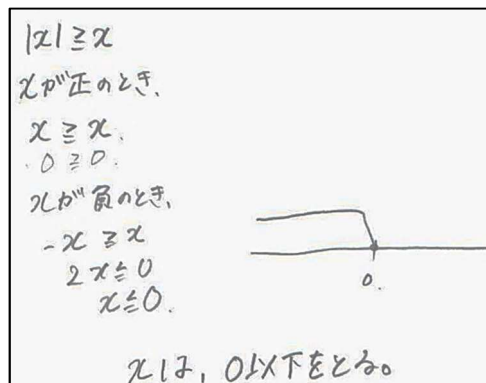 |x| ≧ x
xが正のとき、
x ≧ x.
0 ≧ 0.
xが負のとき、
-x ≧ x
2x ≦ 0
x ≦ 0.
0.
xは、0以下をとる。